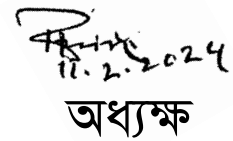 11.2.2024
অধ্যক্ষ